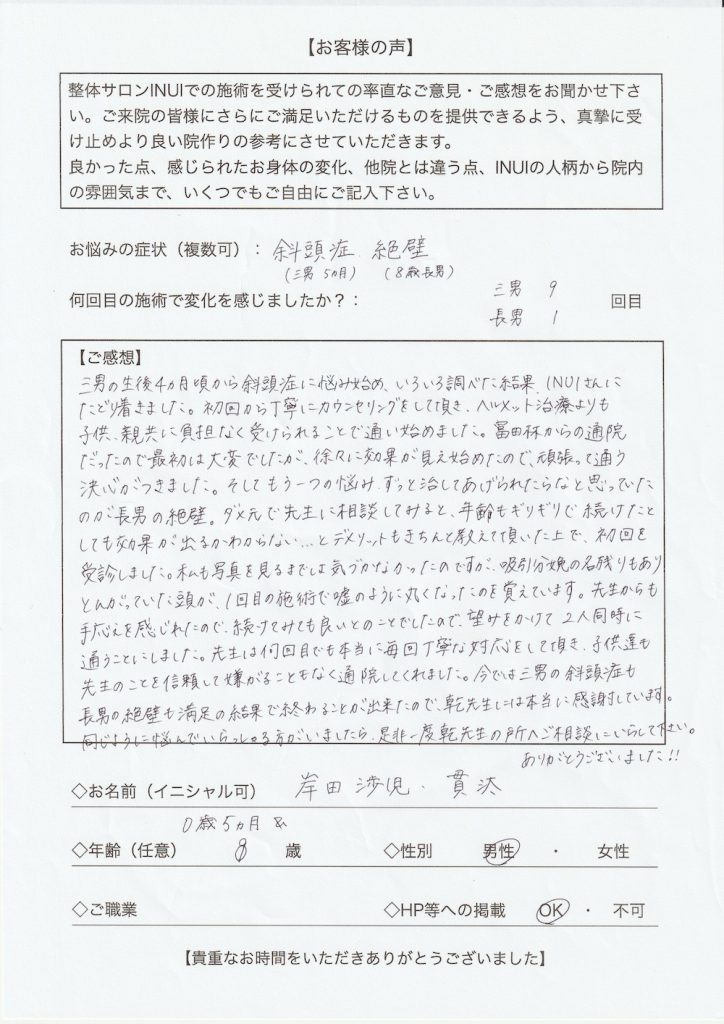 【お客様の声】
整体サロンINUIでの施術を受けられての率直なご意見・ご感想をお聞かせ下さ
い。ご来院の皆様にさらにご満足いただけるものを提供できるよう、真摯に受
け止めより良い院作りの参考にさせていただきます。
良かった点、感じられたお身体の変化、他院とは違う点、INUIの人柄から院内
の雰囲気まで、いくつでもご自由にご記入下さい。
お悩みの症状（複数可）： 斜頭症 絶壁
（三男 5ヵ月） （8歳長男）
何回目の施術で変化を感じましたか？： 三男 9 回目
長男 1
【ご感想】
三男の生後4ヵ月頃から斜頭症に悩み始め、いろいろ調べた結果、INUIさんに
たどり着きました。初回から丁寧にカウンセリングをして頂き、ヘルメット治療よりも
子供、親共に負担なく受けられることで通い始めました。富田林からの通院
だったので最初は大変でしたが、徐々に効果が見え始めたので、頑張って通う
決心がつきました。そしてもう一つの悩み、ずっと治してあげられたらなと思っていた
のが長男の絶壁。ダメ元で先生に相談してみると、年齢もギリギリで続けたと
しても効果が出るかわからない…とデメリットもきちんと教えて頂いた上で、初回を
受診しました。私も写真を見るまでは気づかなかったのですが、吸引分娩の名残りもあり
とんがっていた頭が、1回目の施術で嘘のように丸くなったのを覚えています。先生からも
手応えを感じれたので、続けてみても良いとのことでしたので、望みをかけて2人同時に
通うことにしました。先生は何回目でも本当に毎回丁寧な対応をして頂き、子供達も
先生のことを信頼して嫌がることもなく通院してくれました。今では三男の斜頭症も
長男の絶壁も満足の結果で終わることが出来たので、乾先生には本当に感謝しています。
同じように悩んでいらっしゃる方がいましたら、是非一度乾先生の所へご相談にいらして下さい。
ありがとうございました!!
◇お名前（イニシャル可） 岸田 渉児・貫汰
0歳5ヵ月 &
◇年齢（任意） 8 歳 ◇性別 男性 ・ 女性
◇ご職業 ◇HP等への掲載 OK ・ 不可
【貴重なお時間をいただきありがとうございました】